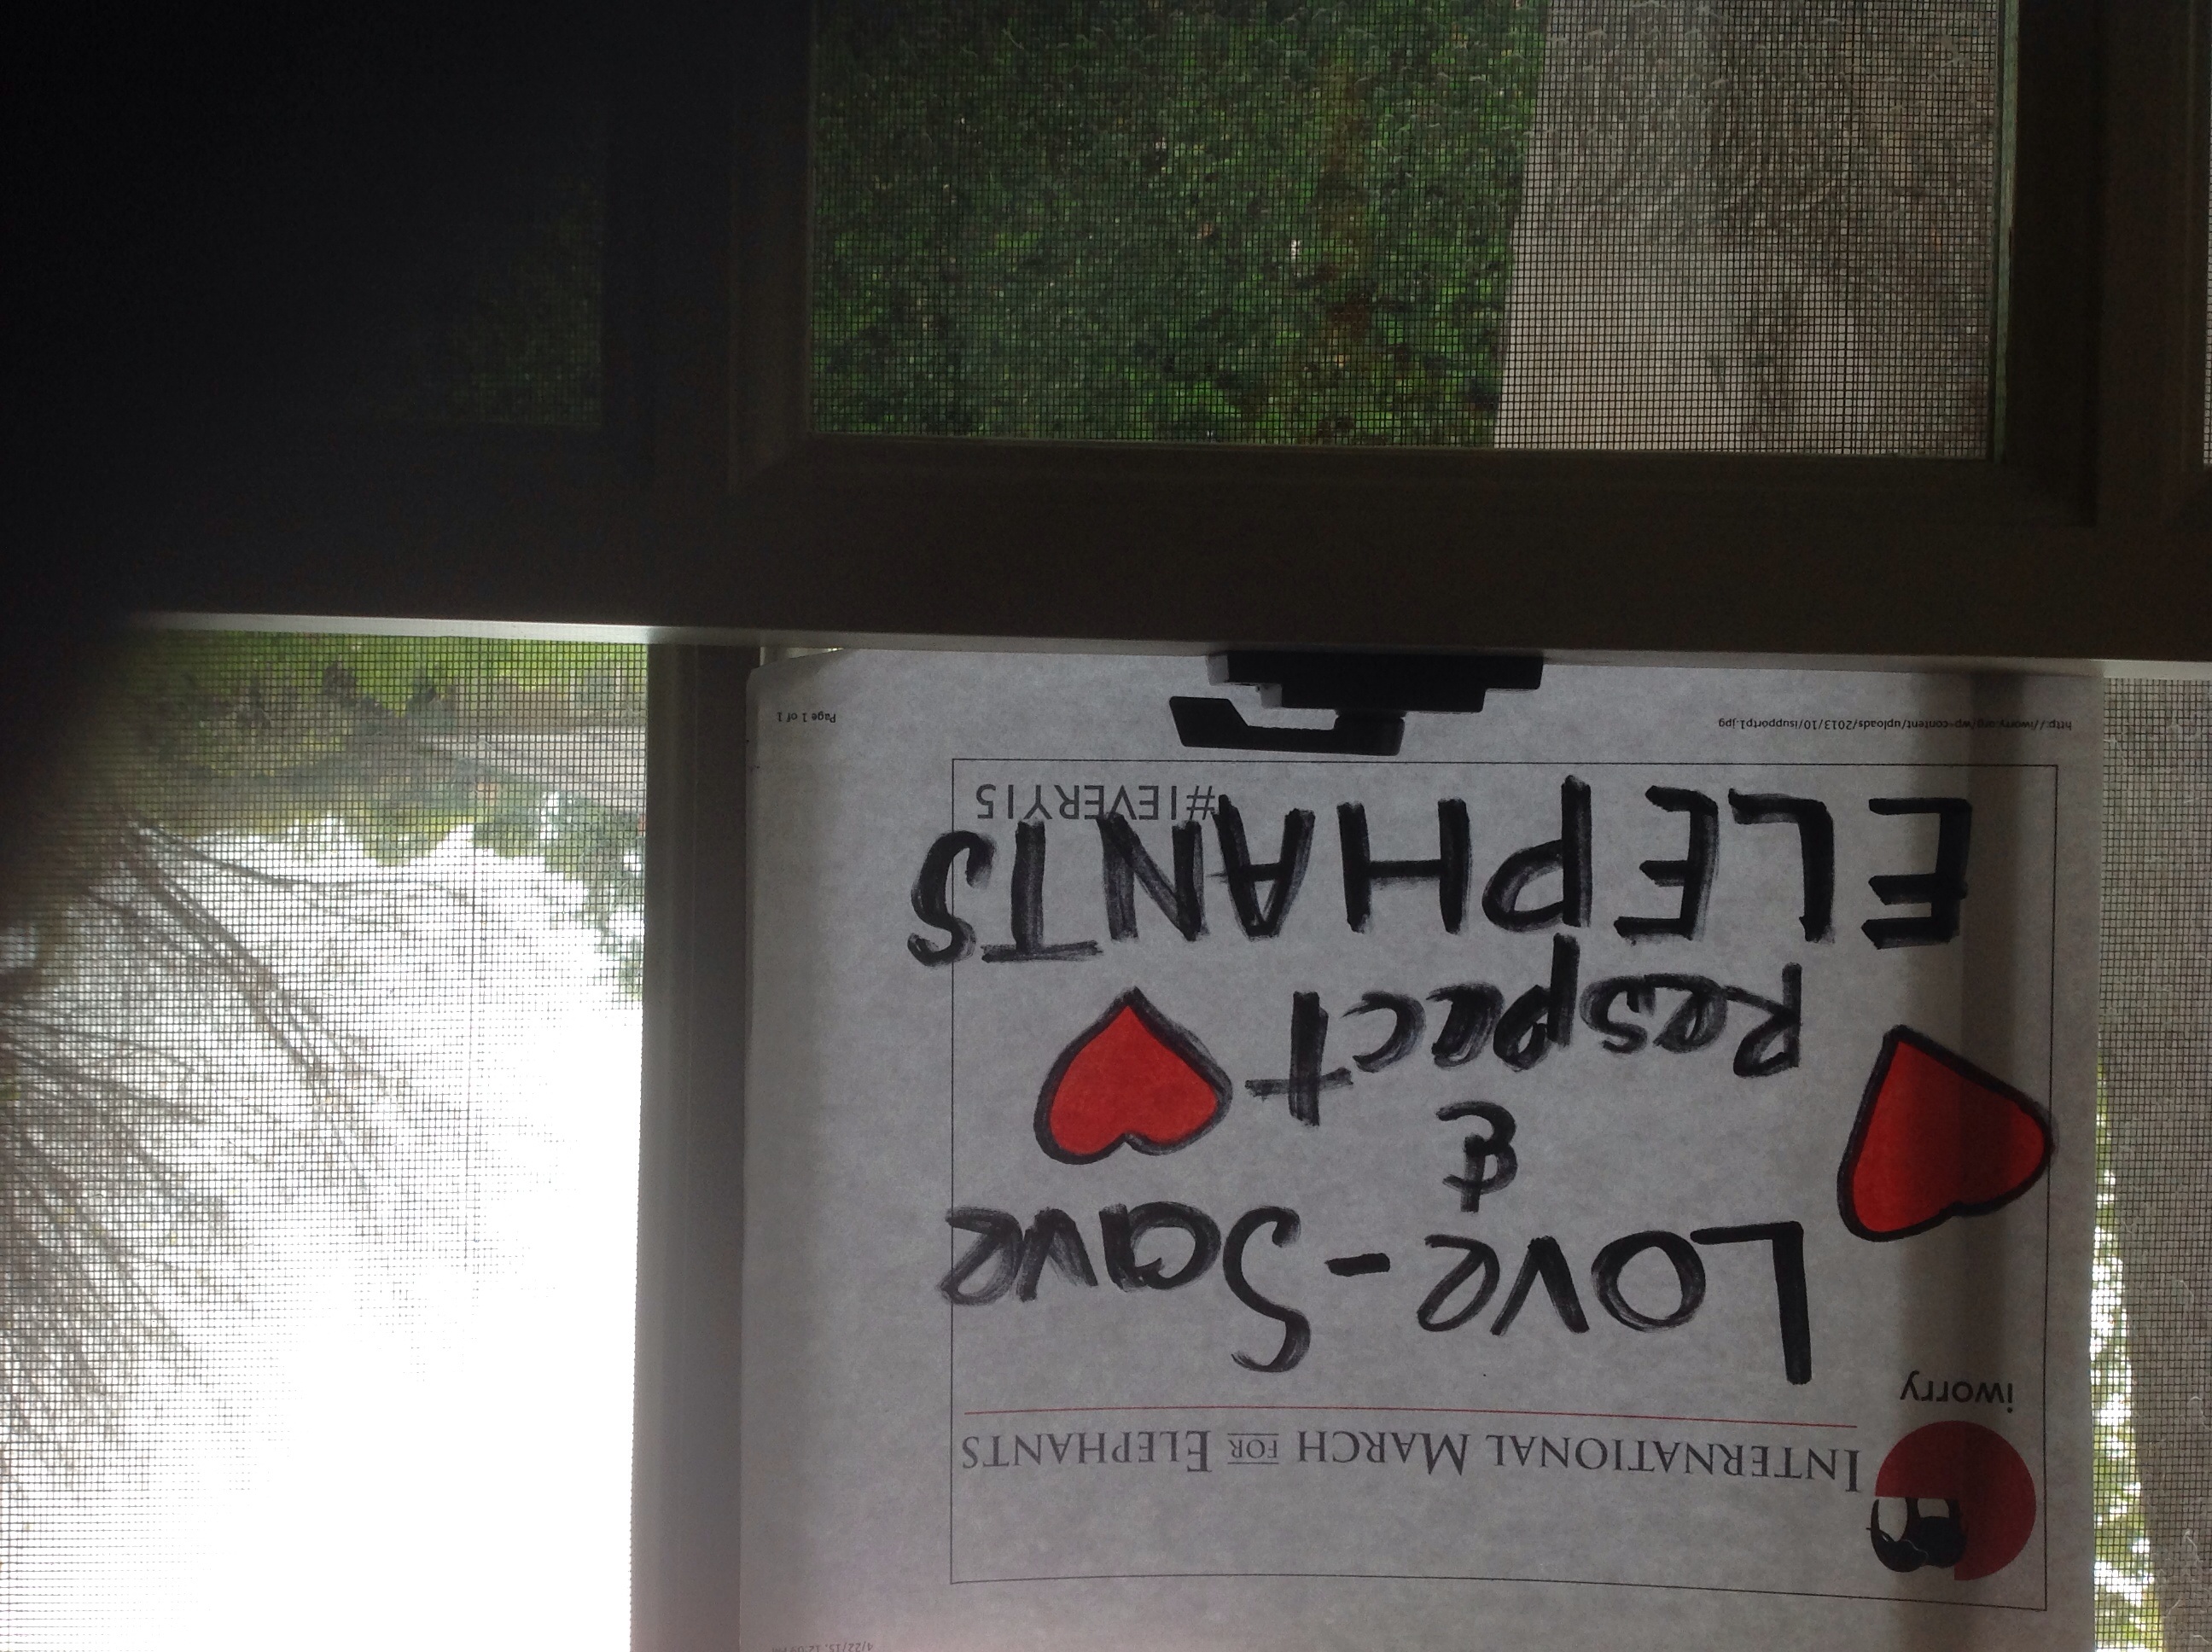 4/22/15, 12:09 PM
INTERNATIONAL MARCH FOR ELEPHANTS
iworry
Love-Save
&
Respect
ELEPHANTS
#1EVERY15
http://iworry.org/wp-content/uploads/2013/10/isupportp1.jpg
Page 1 of 1